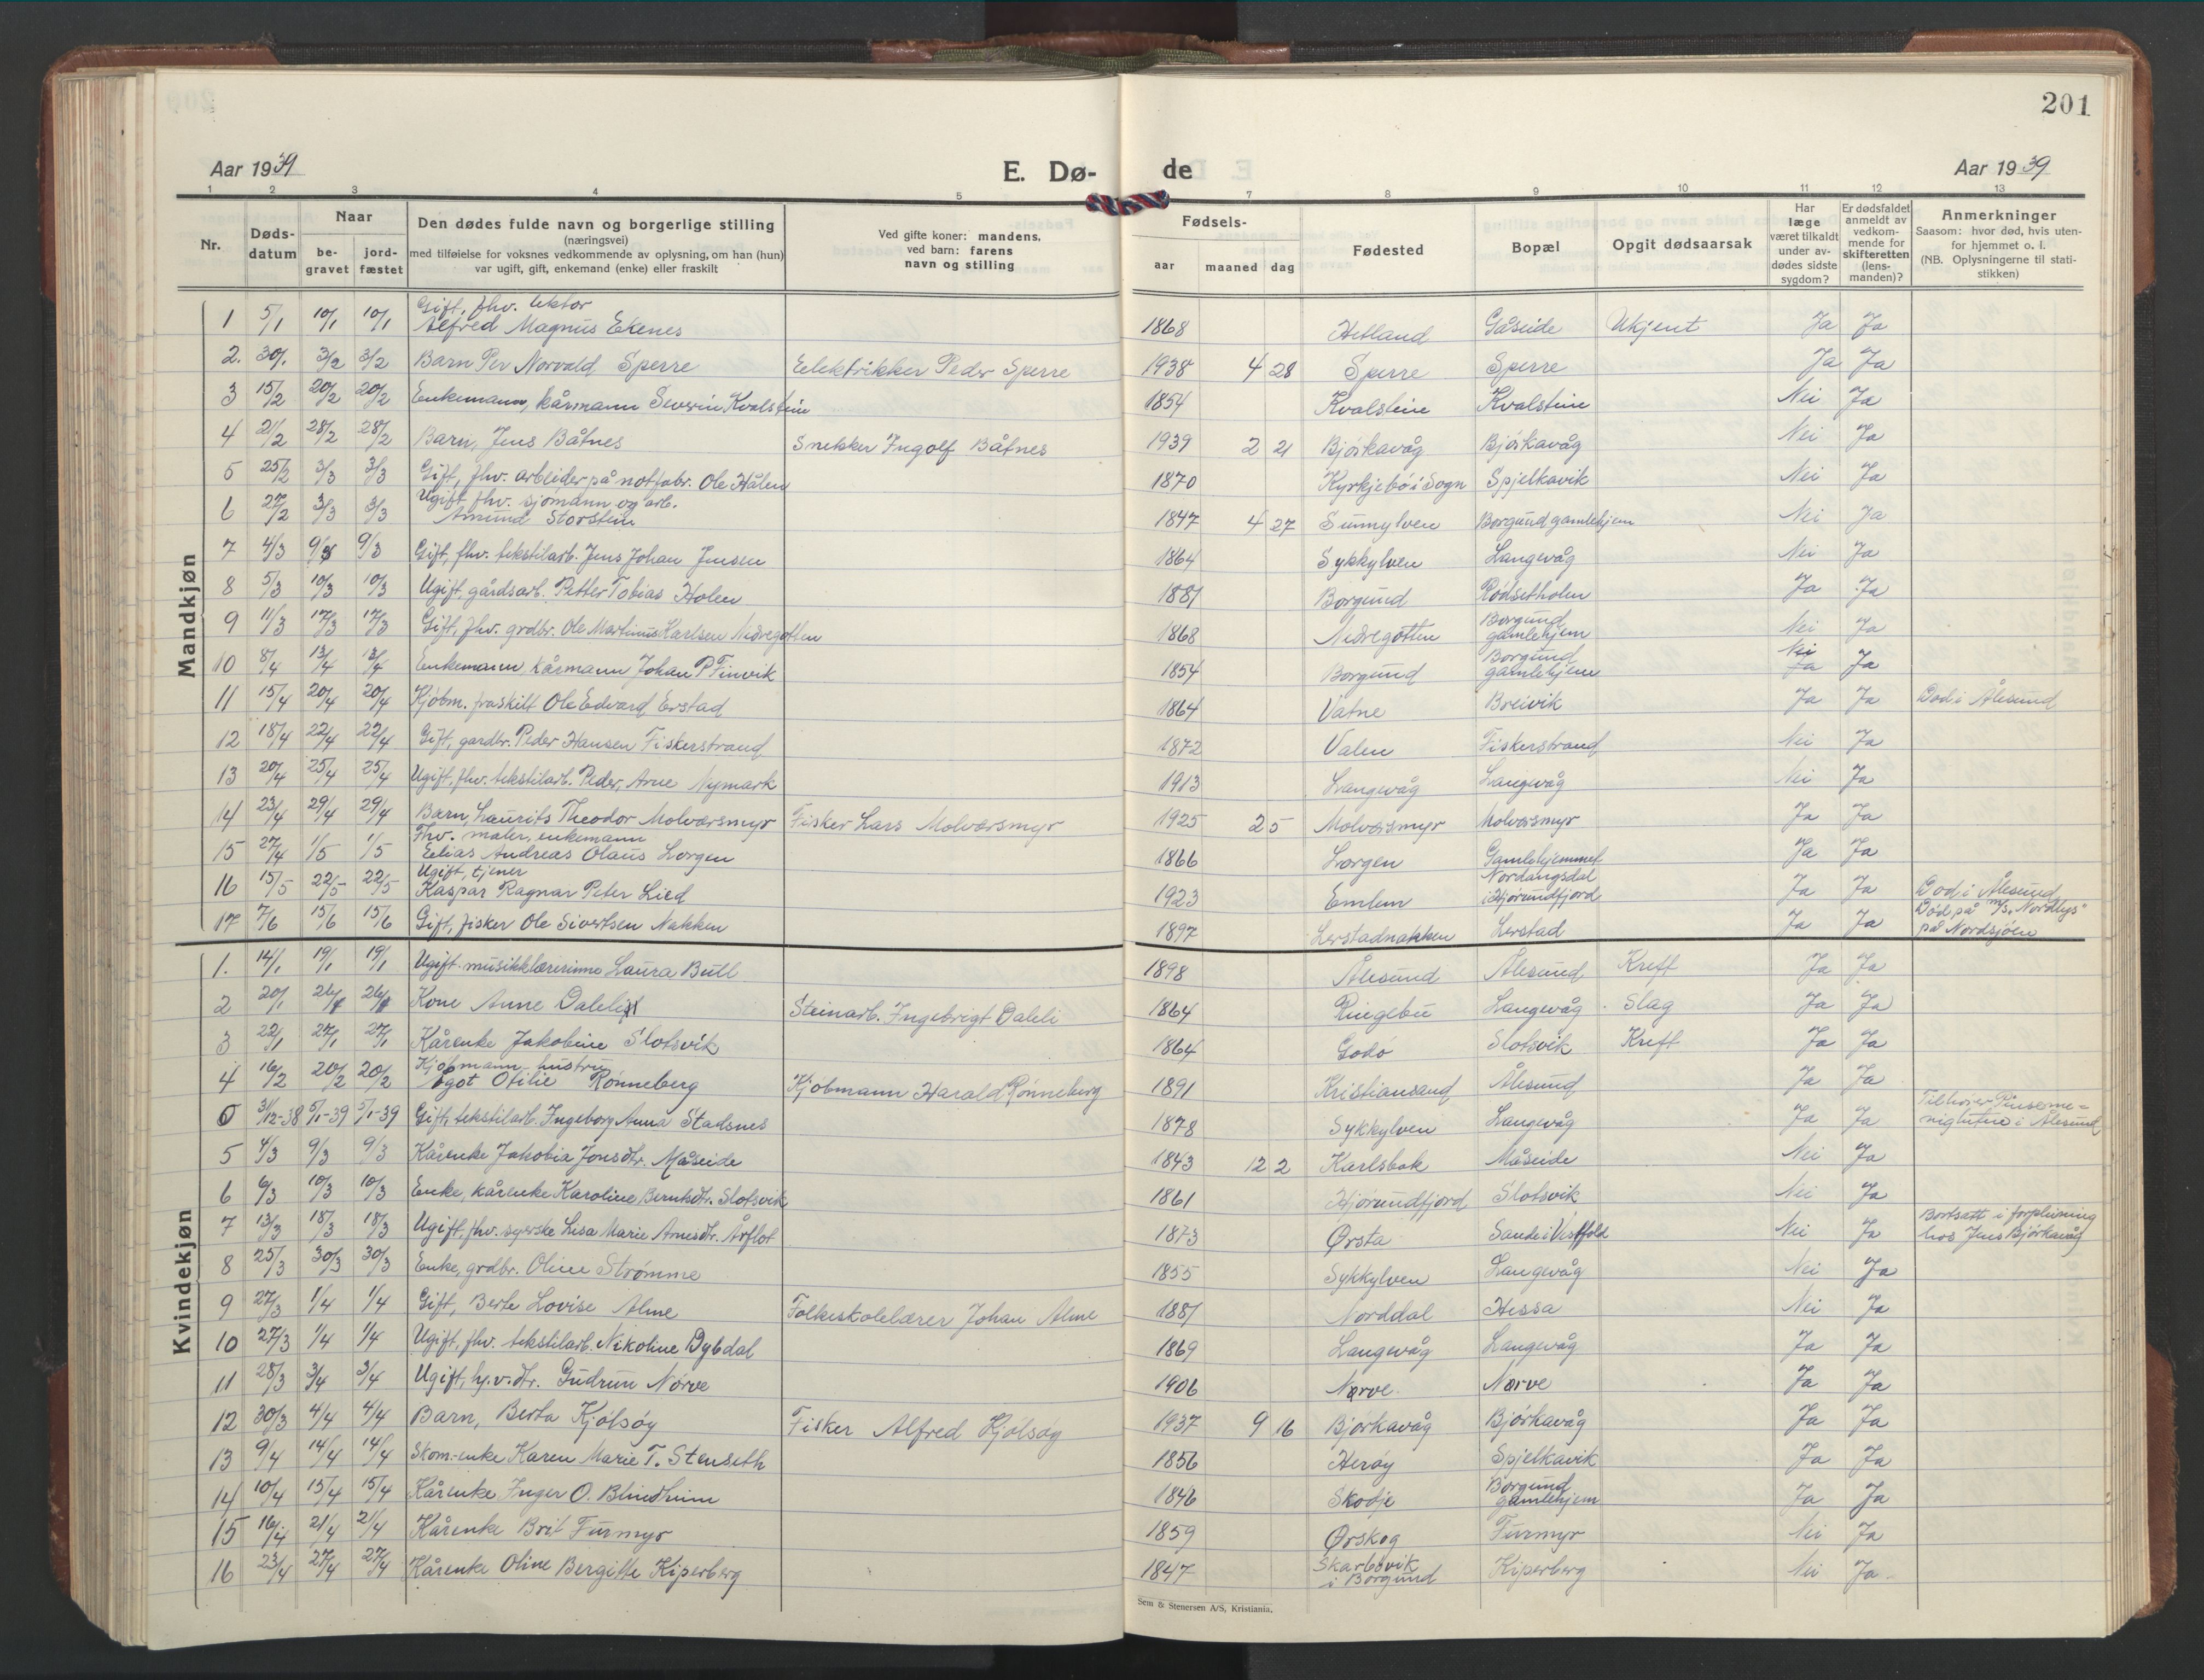 201
Aar 1939 E. Dø- de Aar 1939
1 2 3 4 5 7 8 9 10 11 12 13
Nr. Døds-datum Naar be-gravet jord-fæstet Den dødes fulde navn og borgerlige stilling (næringsvei) med tilføielse for voksnes vedkommende av oplysning, om han (hun) var ugift, gift, enkemand (enke) eller fraskilt Ved gifte koner: mandens, ved barn: farens navn og stilling Fødsels- aar maaned dag Fødested Bopæl Opgit dødsaarsak Har læge været tilkaldt under av-dødes sidste sygdom? Er dødsfaldet anmeldt av vedkom-mende for skifteretten (lens-manden)? Anmerkninger Saasom: hvor død, hvis uten-for hjemmet o. l. (NB. Oplysningerne til stati-stikken)
Mandkjøn
1 5/1 10/1 10/1 Gift, fhv. lektor Alfred Magnus Ekenes 1868 Hetland Gåseide Ukjent Ja Ja
2. 30/1 3/2 3/2 Barn Per Norvald Sperre Elektrikker Peder Sperre 1938 4 28 Sperre Sperre Ja Ja
3 15/2 20/2 20/2 Enkemann, kårmann Severin Kvalstein 1854 Kvalsteine Kvalsteine Nei Ja
4 21/2 28/2 28/2 Barn, Jens Båtnes Snekker Ingolf Båtnes 1939 2 21 Bjørkavåg Bjørkavåg Nei Ja
5 25/2 3/3 3/3 Gift, fhv. arbeider på notfabr. Ole Hålen 1870 Kyrkjebø i Sogn Spjelkavik Nei Ja
6 27/2 3/3 3/3 Ugift fhv. sjømann og arb. Amund Storstein 1847 4 27 Sunnylven Borgund gamlehjem Nei Ja
7 4/3 9/3 9/3 Gift, fhv. tekstilarb. Jens Johan Jensen 1864 Sykkylven Langevåg Nei Ja
8 5/3 10/3 10/3 Ugift, gårdsarb. Petter Tobias Holen 1881 Borgund Rødsetholen Ja Ja
9 11/3 17/3 17/3 Gift, fhv. grdbr. Ole Martinus Karlsen Nedregotten 1868 Nedregotten Borgund gamlehjem Nei Ja
10 8/4 13/4 13/4 Enkemann, kårmann Johan P Finvik 1854 Borgund Borgund gamlehjem Nei Ja Ja
11 15/4 20/4 20/4 Kjøbm. fraskilt Ole Edvard Erstad 1864 Vatne Breivik Ja Ja Død i Ålesund
12 18/4 22/4 22/4 Gift, gardbr. Peder Hansen Fiskerstrand 1872 Valen Fiskerstrand Nei Ja
13 20/4 25/4 25/4 Ugift, fhv. tekstilarb. Peder, Arne Nymark 1913 Langevåg Langevåg Nei Ja
14 23/4 29/4 29/4 Barn, Laurits Theodor Molværsmyr Fisker Lars Molværsmyr 1925 2 5 Molværsmyr Molværsmyr Ja Ja
15 27/4 1/5 1/5 Fhv. maler, enkemann Elias Andreas Olaus Lorgen 1866 Lorgen Gamlehjemmet Ja Ja
16 15/5 22/5 22/5 Ugift, tjener Kaspar Ragnar Peter Lied 1923 Emlem Nordangsdal i Hjørundfjord Ja Ja Død i Ålesund
17 7/6 15/6 15/6 Gift, fisker Ole Sivertsen Nakken 1897 Lerstadnakken Lerstad Ja Ja Død på m/s "Nordlys" på Nordsjøen
Kvindekjøn
1. 14/1 19/1 19/1 Ugift musikklærerinne Laura Bull 1898 Ålesund Ålesund Kreft Ja Ja
2 20/1 26/1 26/1 Kone Anne Daleli Steinarb. Ingebrigt Daleli 1864 Ringebu Langevåg Slag Ja Ja
3 22/1 27/1 27/1 Kårenke Jakobine Slotsvik 1864 Godø Slotsvik Kreft Ja Ja
4 16/2 20/2 20/2 Kjøbmann-hustru Ågot Otilie Rønneberg Kjøbmann Harald Rønneberg 1891 Kristiansand Ålesund Ja Ja
0 31/12-38 5/1-39 5/1-39 Gift, tekstilarb. Ingeborg Anna Stadsnes 1878 Sykkylven Langevåg Ja Ja Tilhører Pinseme-nigheten i Ålesund
5 4/3 9/3 9/3 Kårenke Jakobia Jonsdtr. Måseide 1843 12 2 Karlsbak Måseide Nei Ja
6 6/3 10/3 10/3 Enke, kårenke Karoline Berntsdtr. Slotsvik 1861 Hjørundfjord Slotsvik Nei Ja
7 13/3 18/3 18/3 Ugift, fhv. syerske Lisa Marie Arnesdtr. Årflot 1873 Ørsta Sande i Vestfold Nei Ja Bortsatt i forpleining hos Jens Bjørkavåg
8 25/3 30/3 30/3 Enke, grdbr. Oline Strømme 1855 Sykkylven Langevåg Nei Ja
9 27/3 1/4 1/4 Gift, Berte Lovise Alme Folkeskolelærer Johan Alme 1881 Norddal Hessa Nei Ja
10 27/3 1/4 1/4 Ugift, fhv. tekstilarb. Nikoline Dybdal 1869 Langevåg Langevåg Ja Ja
11 28/3 3/4 3/4 Ugift, hj.v.dtr. Gudrun Nørve 1906 Nørve Nørve Ja Ja
12 30/3 4/4 4/4 Barn, Berta Kjølsøy Fisker Alfred Kjølsøy 1937 9 16 Bjørkavåg Bjørkavåg Ja Ja
13 9/4 14/4 14/4 Skom-enke Karen Marie T. Stenseth 1856 Herøy Spjelkavik Ja Ja
14 10/4 15/4 15/4 Kårenke Inger O. Blindheim 1846 Skodje Borgund gamlehjem Ja Ja
15 16/4 21/4 21/4 Kårenke Brit Furmyr 1859 Ørskog Furmyr Nei Ja
16 23/4 27/4 27/4 Kårenke Oline Bergitte Kiperberg 1847 Skarbøvik i Borgund Kiperberg Nei Ja
Sem & Stenersen A/S, Kristiania.